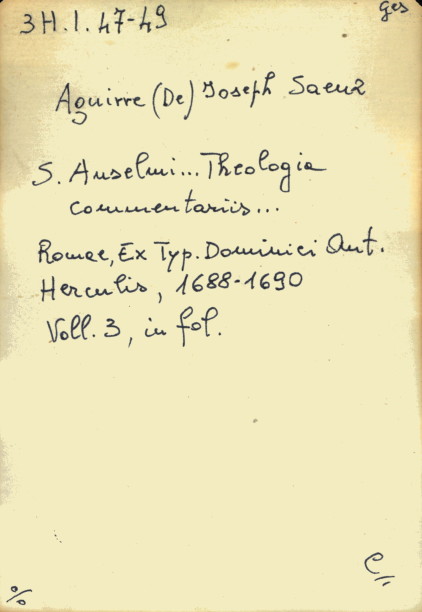 3H.I.47-49
ges
Aguirre (De) Joseph Saenz
S. Anselmi... Theologia
commentariis...
Romae, Ex Typ. Dominici Ant.
Herculis, 1688-1690
Voll. 3, in fol.
%
C